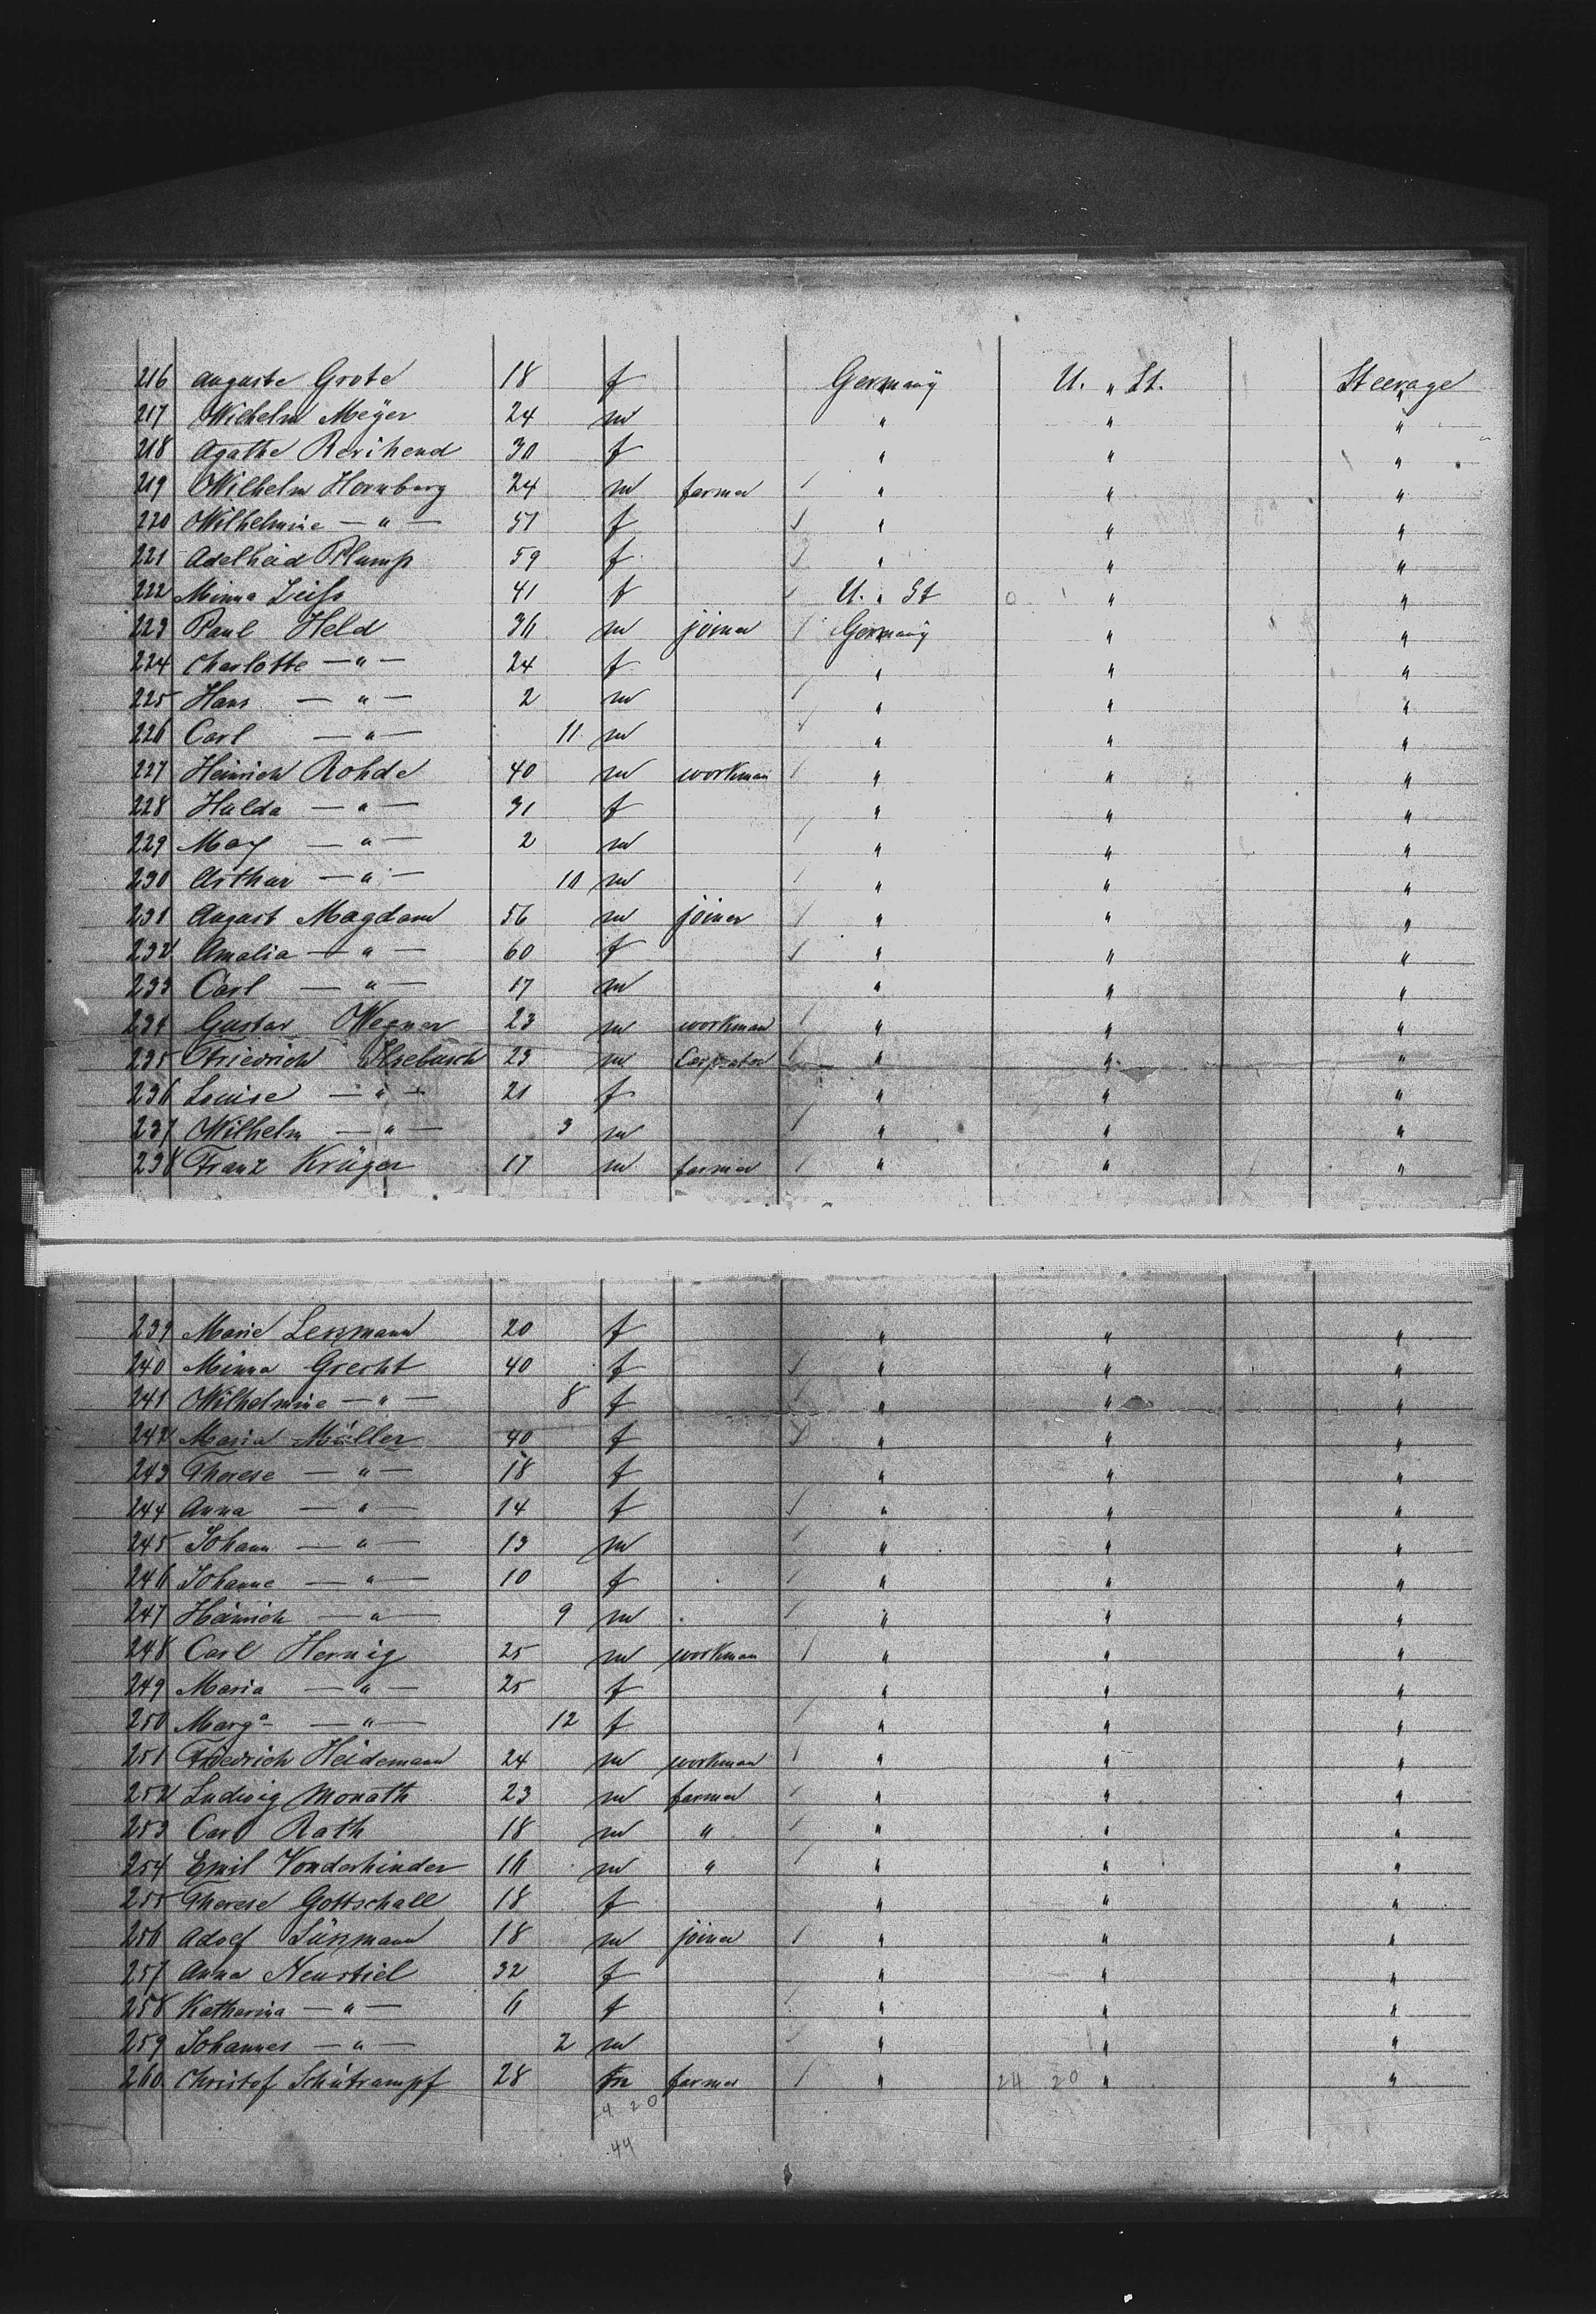 216 Auguste Grote 18 f Germany U. " St. Steerage
217 Wilhelm Meÿer 24 m " " "
218 Agathe 30 f " " "
219 Wilhelm Hornburg 24 m farmer " " "
220 Wilhelmine — " — 51 f " " "
221 Adelheid Plump 59 f " " "
222 Minna 41 f U. " St " "
223 Paul Held 36 m joiner Germany " "
224 Charlotte — " — 24 f " " "
225 Hans — " — 2 m " " "
226 Carl — " — 11 m " " "
227 Heinrich Rohde 40 m workman " " "
228 Hulda — " — 31 f " " "
229 Max — " — 2 m " " "
230 Arthur — " — 10 m " " "
231 August Magdam 56 m joiner " " "
232 Amalia — " — 60 f " " "
233 Carl — " — 17 m " " "
234 Gustav Wegner 23 m workman " " "
235 Friedrich Ilsebusch 23 m " " "
236 Louise — " — 21 f " " "
237 Wilhelm — " — 3 m " " "
238 Franz Krüger 17 m farmer " " "
239 Marie Lenzmann 20 f " " "
240 Minna Grecht 40 f " " "
241 Wilhelmine — " — 8 f " " "
242 Maria Müller 40 f " " "
243 Therese — " — 18 f " " "
244 Anna — " — 14 f " " "
245 Johann — " — 13 m " " "
246 Johanne — " — 10 f " " "
247 Heinrich — " — 9 m " " "
248 Carl Hernig 25 m workman " " "
249 Maria — " — 25 f " " "
250 Marg.a — " — 12 f " " "
251 Friedrich Heidemann 24 m workman " " "
252 Ludwig Monath 23 m farmer " " "
253 Carl Rath 18 m " " " "
254 Emil Vonderhinder 16 m " " " "
255 Therese Gottschall 18 f " " "
256 Adolf Lürmann 18 m joiner " " "
257 Anna Neustiel 32 f " " "
258 Katharina — " — 6 f " " "
259 Johannes — " — 2 m " " "
260 Christof Schütrumpf 28 m farmer " 24 20 " "
4 20
44